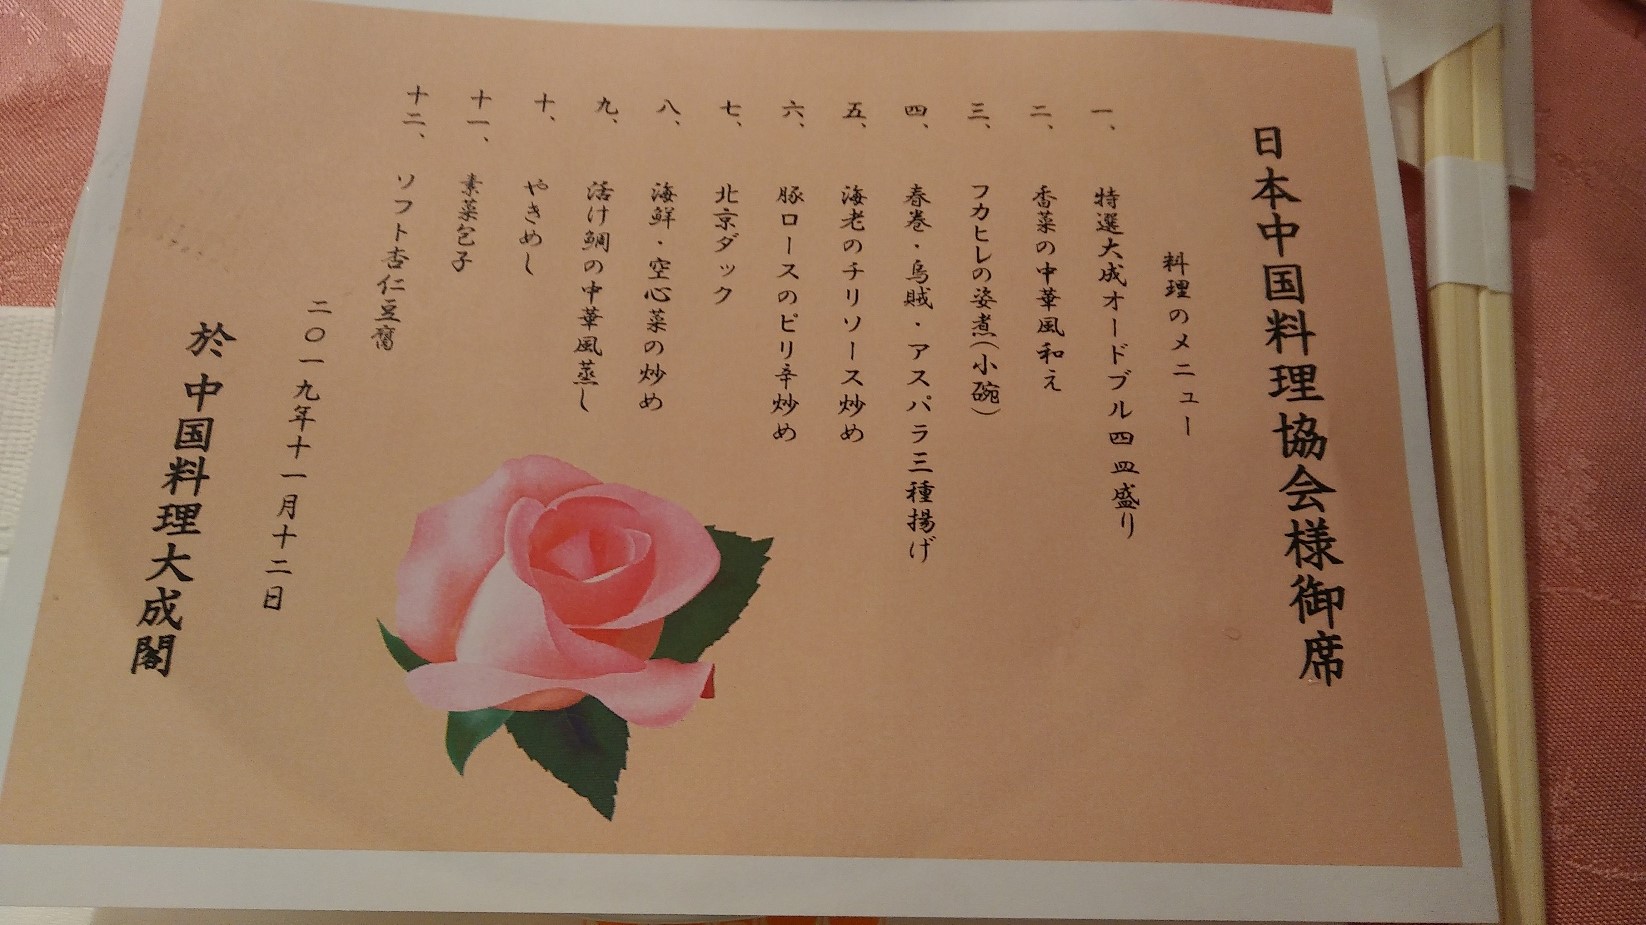 日本中国料理協会様御席
料理のメニュー
一、 特選大成オードブル四皿盛り
二、 香菜の中華風和え
三、 フカヒレの姿煮(小碗)
四、 春巻・烏賊・アスパラ三種揚げ
五、 海老のチリソース炒め
六、 豚ロースのピリ辛炒め
七、 北京ダック
八、 海鮮・空心菜の炒め
九、 活け鯛の中華風蒸し
十、 やきめし
十一、 素菜包子
十二、 ソフト杏仁豆腐
二〇一九年十一月十二日
於 中国料理大成閣